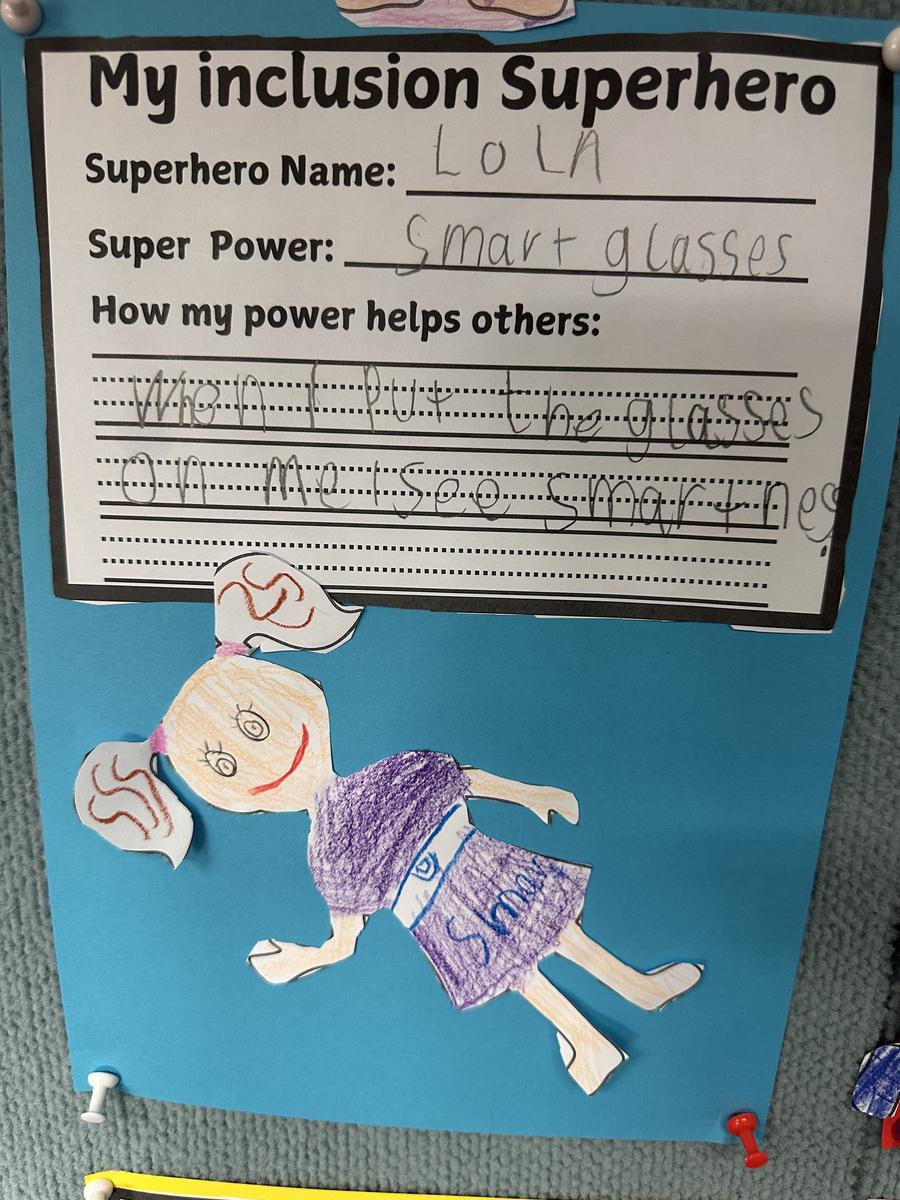 My inclusion Superhero
Superhero Name: LOLA
Super Power: Smart glasses
How my power helps others:
When I put the glasses
on me I see smartnes.
Smart